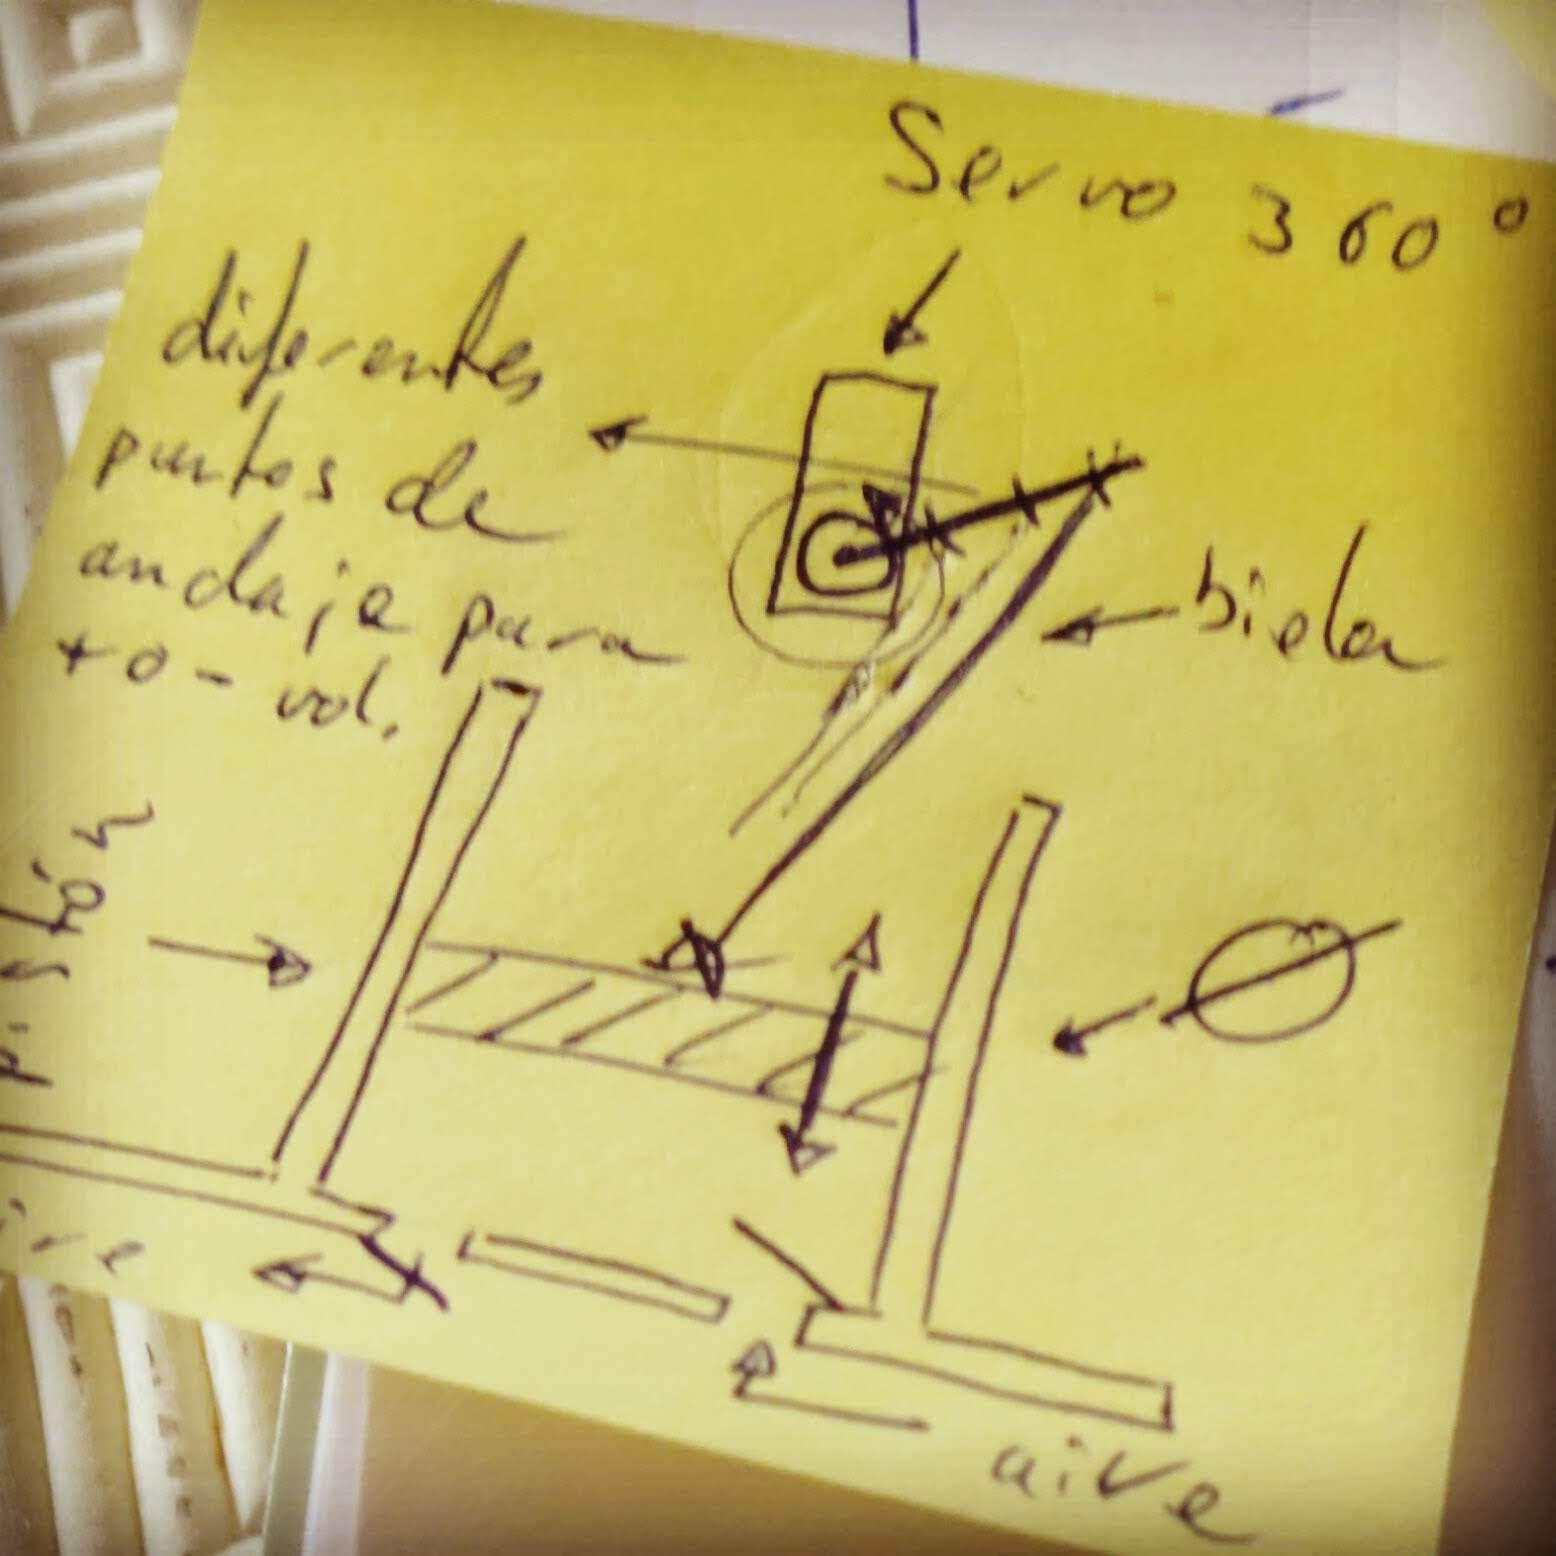 Servo 360°
diferentes
puntos de
anclaje para
+ o - vol.
biela
pistón
aire